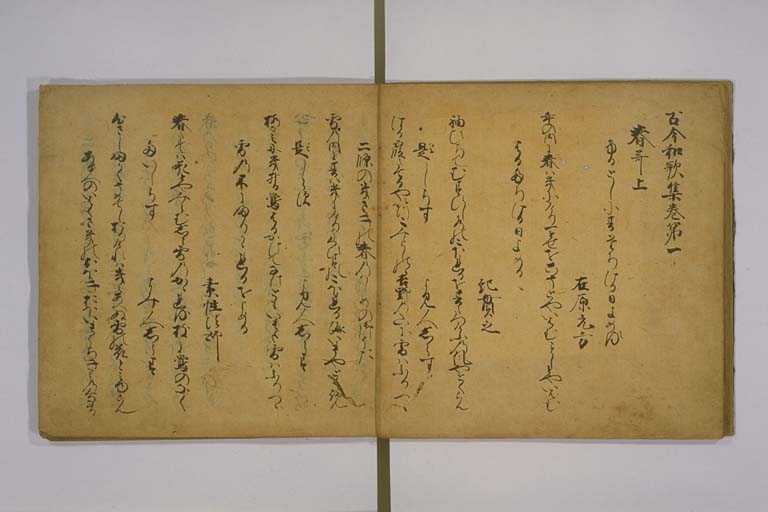 古今和歌集巻第一
春哥上
ふるとしに春たちける日よめる
在原元方
年の内に春はきにけり一とせをこそとやいはむことしとやいはむ
はるたちける日よめる
紀貫之
袖ひちてむすひし水のこほれるを春立けふの風やとくらん
題しらす　よみ人しらす
春霞たてるやいつこみよしのゝ吉野の山に雪はふりつゝ
二条のきさきの春のはしめの御うた
雪の内に春はきにけり鶯のこほれる泪いまやとくらん
題しらす　よみ人しらす
梅かえにきゐる鶯はるかけてなけともいまた雪はふりつゝ
雪の木にふりかゝれるをよめる
素性法師
春たては花とやみらむ白雪のかゝれる枝に鶯のなく
題しらす　よみ人しらす
心さしふかくそめてしおりけれはきえあへぬ雪の花とみゆらん